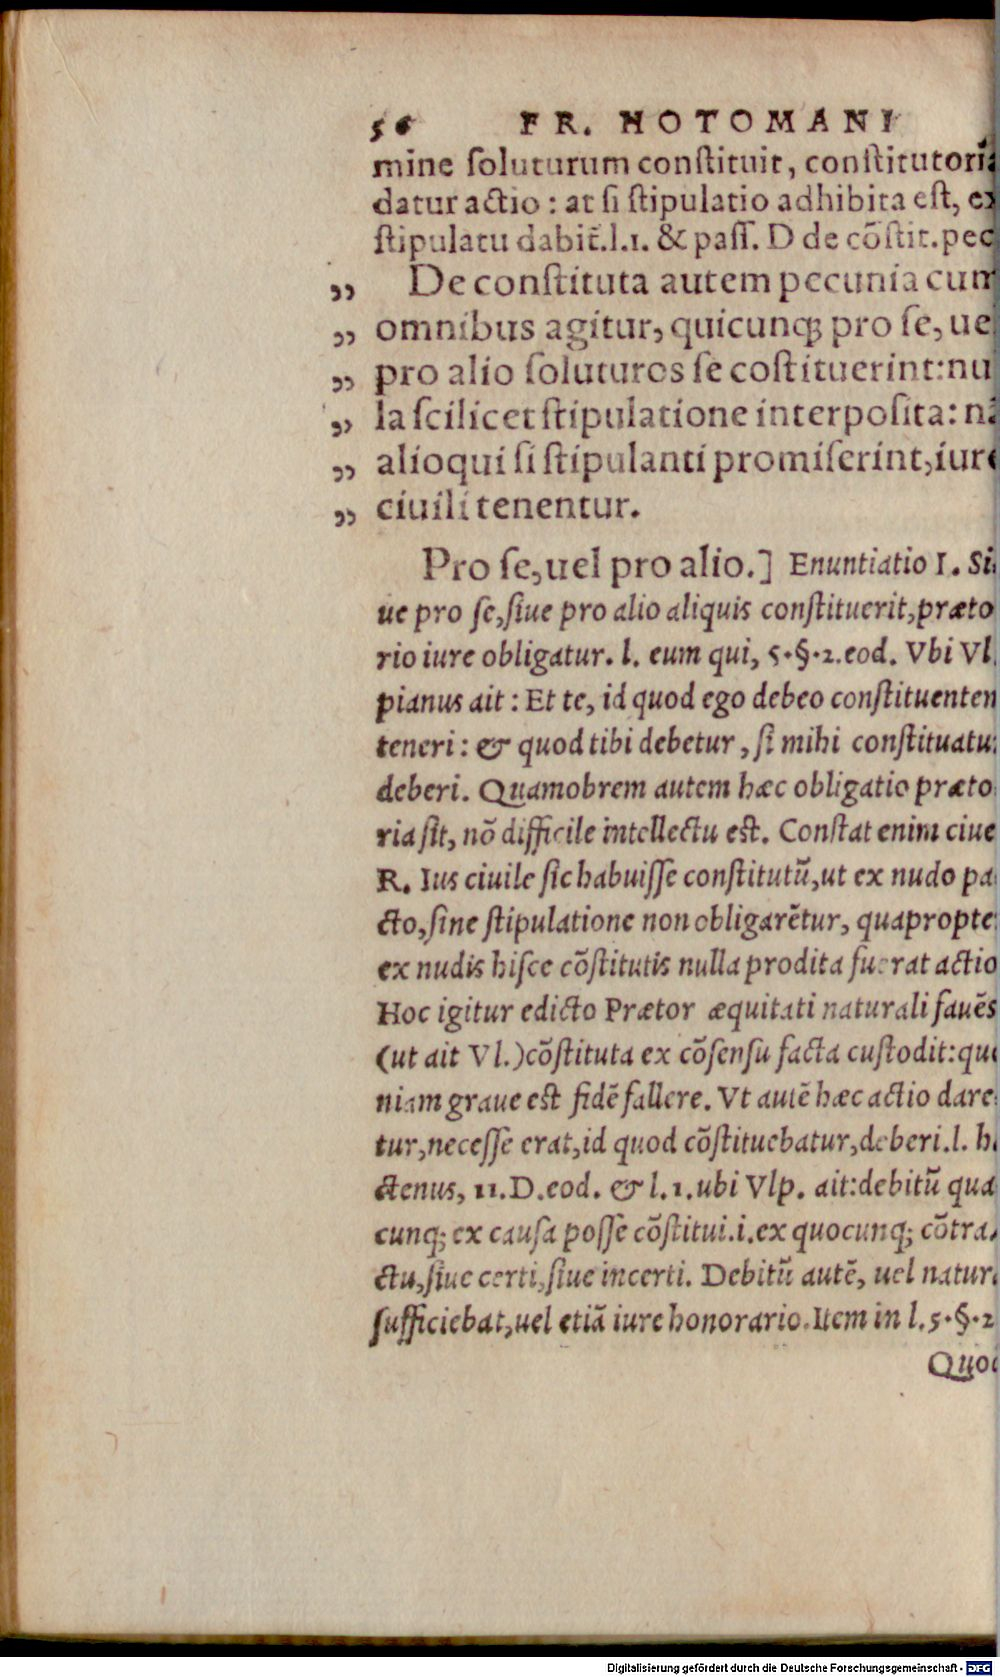 56 FR. HOTOMANI
mine ſoluturum conſtituit, conſtitutoria
datur actio: at ſi ſtipulatio adhibita eſt, ex
ſtipulatu dabit̃.l.1. & paſſ. D de cõſtit.pec
„ De conſtituta autem pecunia cum
„ omnibus agitur, quicunq; pro ſe, ue
„ pro alio ſoluturos ſe coſtituerint: nu
„ la ſcilicet ſtipulatione interpoſita: nã
„ alioqui ſi ſtipulanti promiſerint, iure
„ ciuili tenentur.
Pro ſe, uel pro alio.] Enuntiatio I. Si
ue pro ſe, ſiue pro alio aliquis conſtituerit, præto
rio iure obligatur. l. eum qui, 5.§.2.eod. Vbi Vl
pianus ait: Et te, id quod ego debeo conſtituentem
teneri: & quod tibi debetur, ſi mihi conſtituatu
deberi. Quamobrem autem hæc obligatio præto
ria ſit, nõ difficile intellectu eſt. Conſtat enim ciue
R. Ius ciuile ſic habuiſſe conſtitutũ, ut ex nudo pa
cto, ſine ſtipulatione non obligarẽtur, quapropte
ex nudis hiſce cõſtitutis nulla prodita fuerat actio
Hoc igitur edicto Prætor æquitati naturali fauẽs
(ut ait Vl.) cõſtituta ex cõſenſu facta cuſtodit: quo
niam graue eſt fidẽ fallere. Vt autẽ hæc actio dare
tur, neceſſe erat, id quod cõſtituebatur, deberi. l. h
ctenus, 11.D.eod. & l.1.ubi Vlp. ait: debitũ qua
cunq; ex cauſa poſſe cõſtitui.i.ex quocunq; cõtra
ctu, ſiue certi, ſiue incerti. Debitũ autẽ, uel natura
ſufficiebat, uel etiã iure honorario. Item in l.5.§.2
Quod
Digitalisierung gefördert durch die Deutsche Forschungsgemeinschaft - DFG